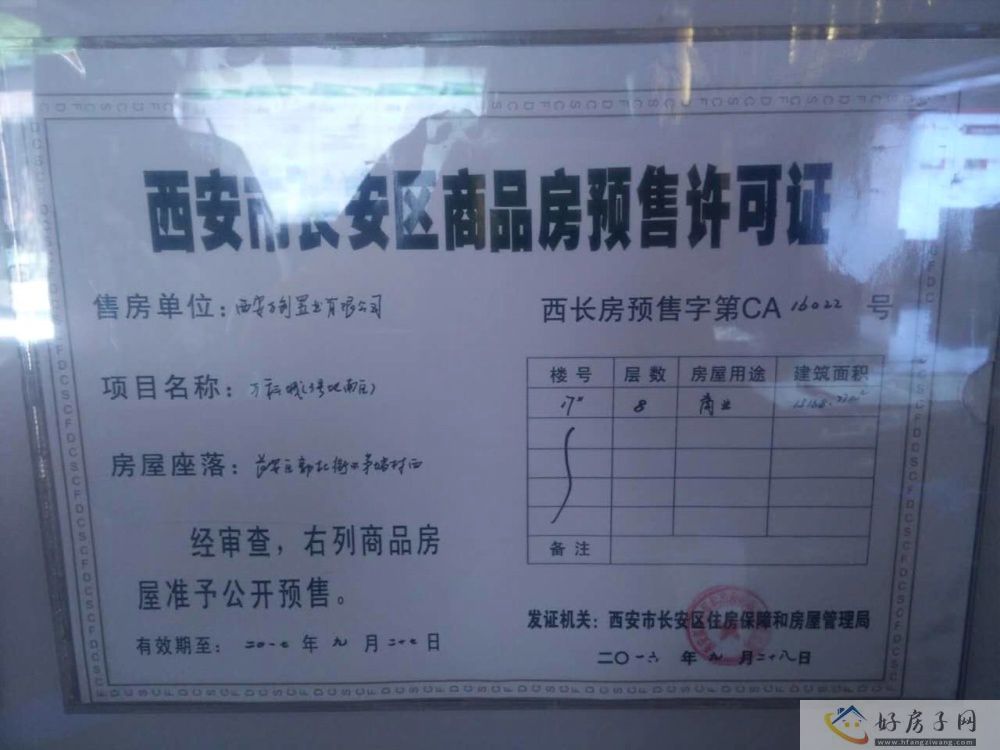 西安市长安区商品房预售许可证
售房单位：西安万利置业有限公司
西长房预售字第CA 16022 号
项目名称：
房屋座落：
经审查，右列商品房
屋准予公开预售。
有效期至：二〇一七年九月二十七日
楼号 层数 房屋用途 建筑面积
17# 8 商业
备注
发证机关：西安市长安区住房保障和房屋管理局
二〇一六年九月二十八日
好房子网
www.hfangziwang.com